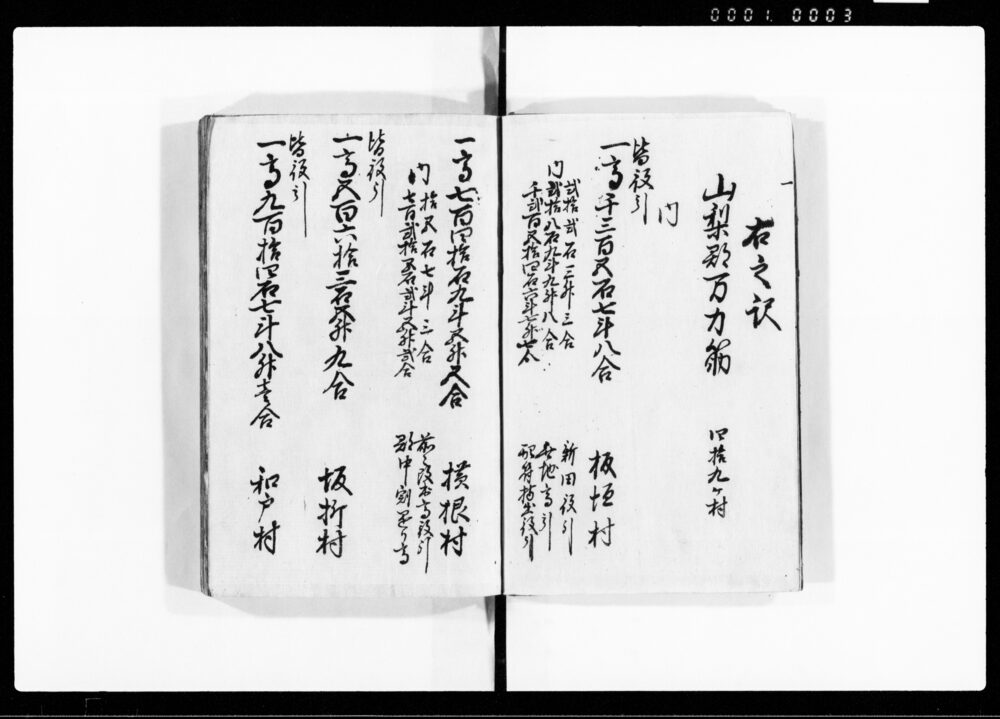 0001 0003
右之訳
一
山梨郡万力筋 四拾九ケ村
内
皆役引
一高千三百五石七斗八合 板垣村
内 弐拾弐石三升三合 新田役引
弐拾八石九斗九升八合 無地高引
千弐百五拾四石六斗七升七合
一高七百四拾石九斗五升五合 横根村
内 拾五石七斗三合
七百弐拾五石弐斗五升弐合 郡中割
皆役引
一高五百六拾三石五升九合 坂折村
皆役引
一高九百拾四石七斗八升壱合 和戸村